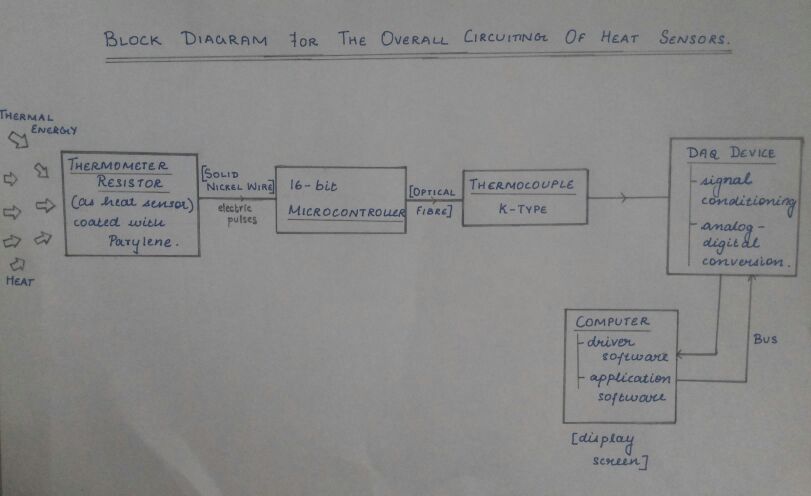 BLOCK DIAGRAM FOR THE OVERALL CIRCUITING OF HEAT SENSORS.
THERMAL
ENERGY
HEAT
THERMOMETER
RESISTOR
(as heat sensor)
coated with
Parylene.
[SOLID
NICKEL WIRE]
electric
pulses
16-bit
MICROCONTROLLER
[OPTICAL
FIBRE]
THERMOCOUPLE
K-TYPE
DAQ DEVICE
- signal
conditioning
- analog-
digital
conversion.
BUS
COMPUTER
- driver
software
- application
software
[display
screen]